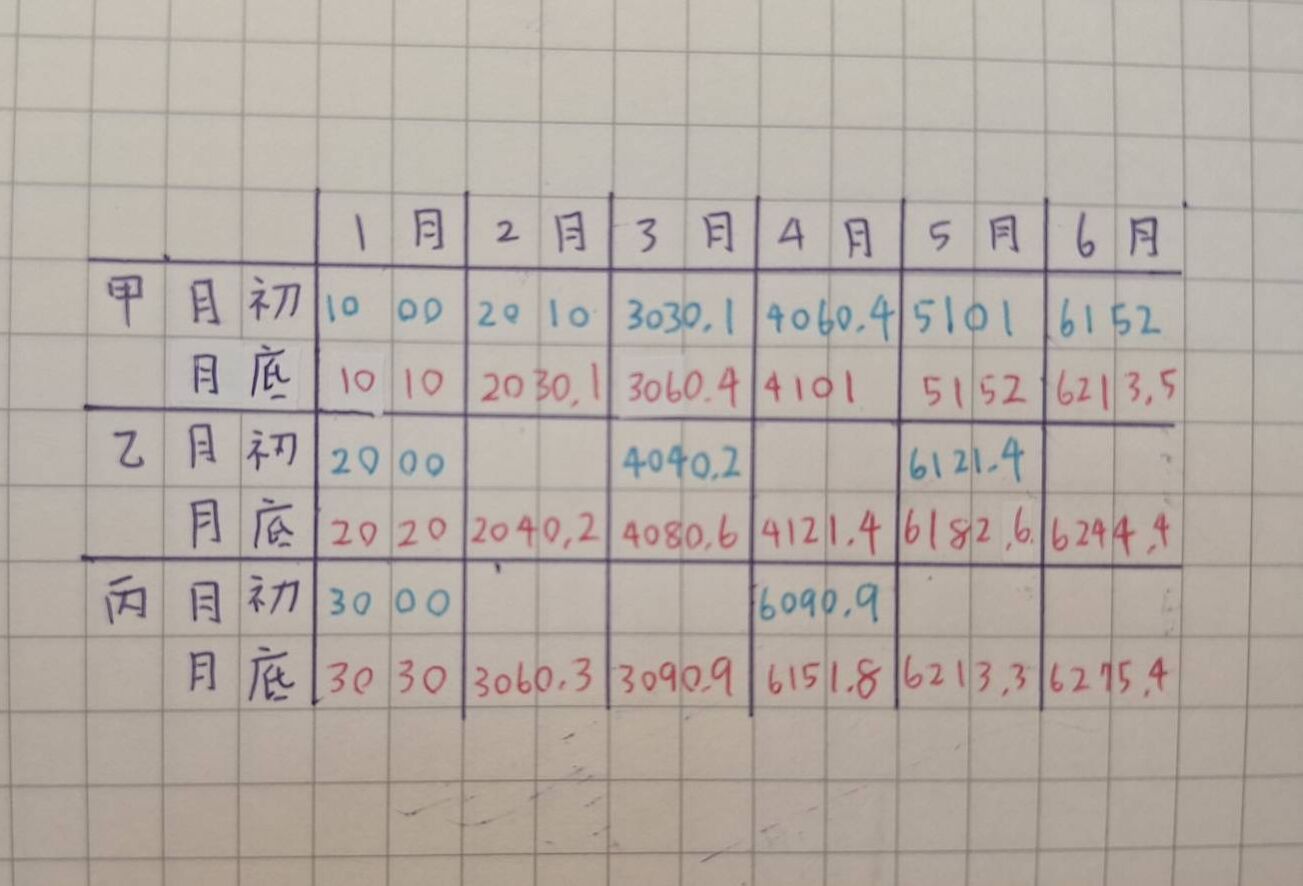 1月 2月 3月 4月 5月 6月
甲 月初 1000 2010 3030.1 4060.4 5101 6152
月底 1010 2030.1 3060.4 4101 5152 6213.5
乙 月初 2000 4040.2 6121.4
月底 2020 2040.2 4080.6 4121.4 6182.6 6244.4
丙 月初 3000 6090.9
月底 3030 3060.3 3090.9 6151.8 6213.3 6275.4